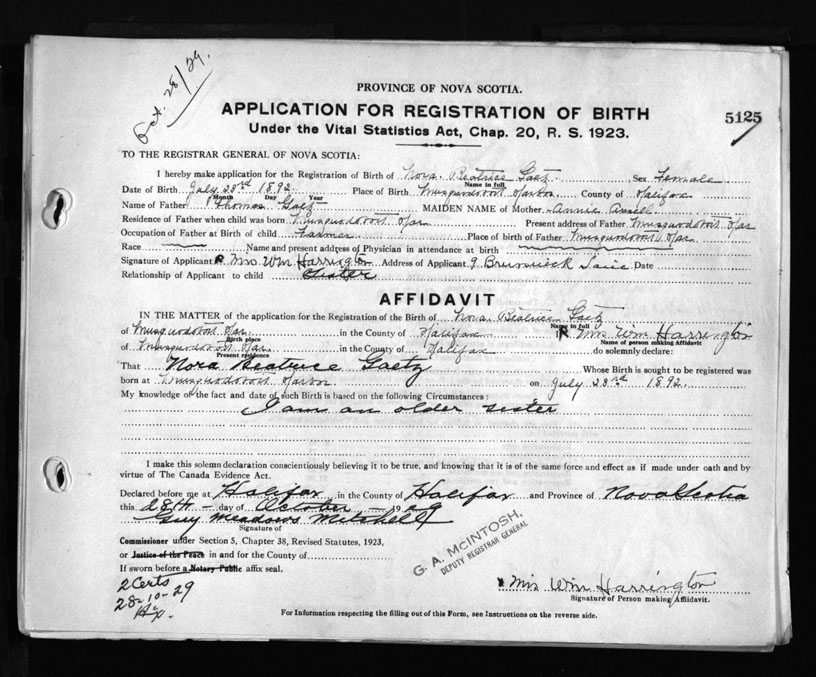 Oct. 28/29.
PROVINCE OF NOVA SCOTIA.
APPLICATION FOR REGISTRATION OF BIRTH
5125
Under the Vital Statistics Act, Chap. 20, R. S. 1923.
TO THE REGISTRAR GENERAL OF NOVA SCOTIA:
I hereby make application for the Registration of Birth of Nora Beatrice Gaetz Sex Female
Name in full
Date of Birth July 23rd 1892. Place of Birth Musquodoboit Harbor County of Halifax
Month Day Year
Name of Father Thomas Gaetz MAIDEN NAME of Mother Annie
Residence of Father when child was born Musquodoboit Har Present address of Father Musquodoboit Har
Occupation of Father at Birth of child Farmer Place of birth of Father Musquodoboit Har.
Race Name and present address of Physician in attendance at birth
Signature of Applicant Mrs. Wm Harrington Address of Applicant 9 Brunswick Date
Relationship of Applicant to child Sister
AFFIDAVIT
IN THE MATTER of the application for the Registration of the Birth of Nora Beatrice Gaetz
Name in full
of Musquodoboit Har. in the County of Halifax Mrs Wm Harrington
Birth place Name of person making Affidavit
of Musquodoboit Har. in the County of Halifax do solemnly declare:
Present residence
That Nora Beatrice Gaetz Whose Birth is sought to be registered was
born at Musquodoboit Harbor on July 23rd 1892.
My knowledge of the fact and date of such Birth is based on the following Circumstances:
I am an older sister
I make this solemn declaration conscientiously believing it to be true, and knowing that it is of the same force and effect as if made under oath and by
virtue of The Canada Evidence Act.
Declared before me at Halifax in the County of Halifax and Province of Nova Scotia
this 28th day of October 1929
Guy Meadows Mitchell
Signature of
Commissioner under Section 5, Chapter 38, Revised Statutes, 1923,
or Justice of the Peace in and for the County of
If sworn before a Notary Public affix seal.
G. A. McINTOSH,
DEPUTY REGISTRAR GENERAL
2 Certs
28-10-29
Mrs Wm Harrington
Signature of Person making Affidavit.
For Information respecting the filling out of this Form, see Instructions on the reverse side.